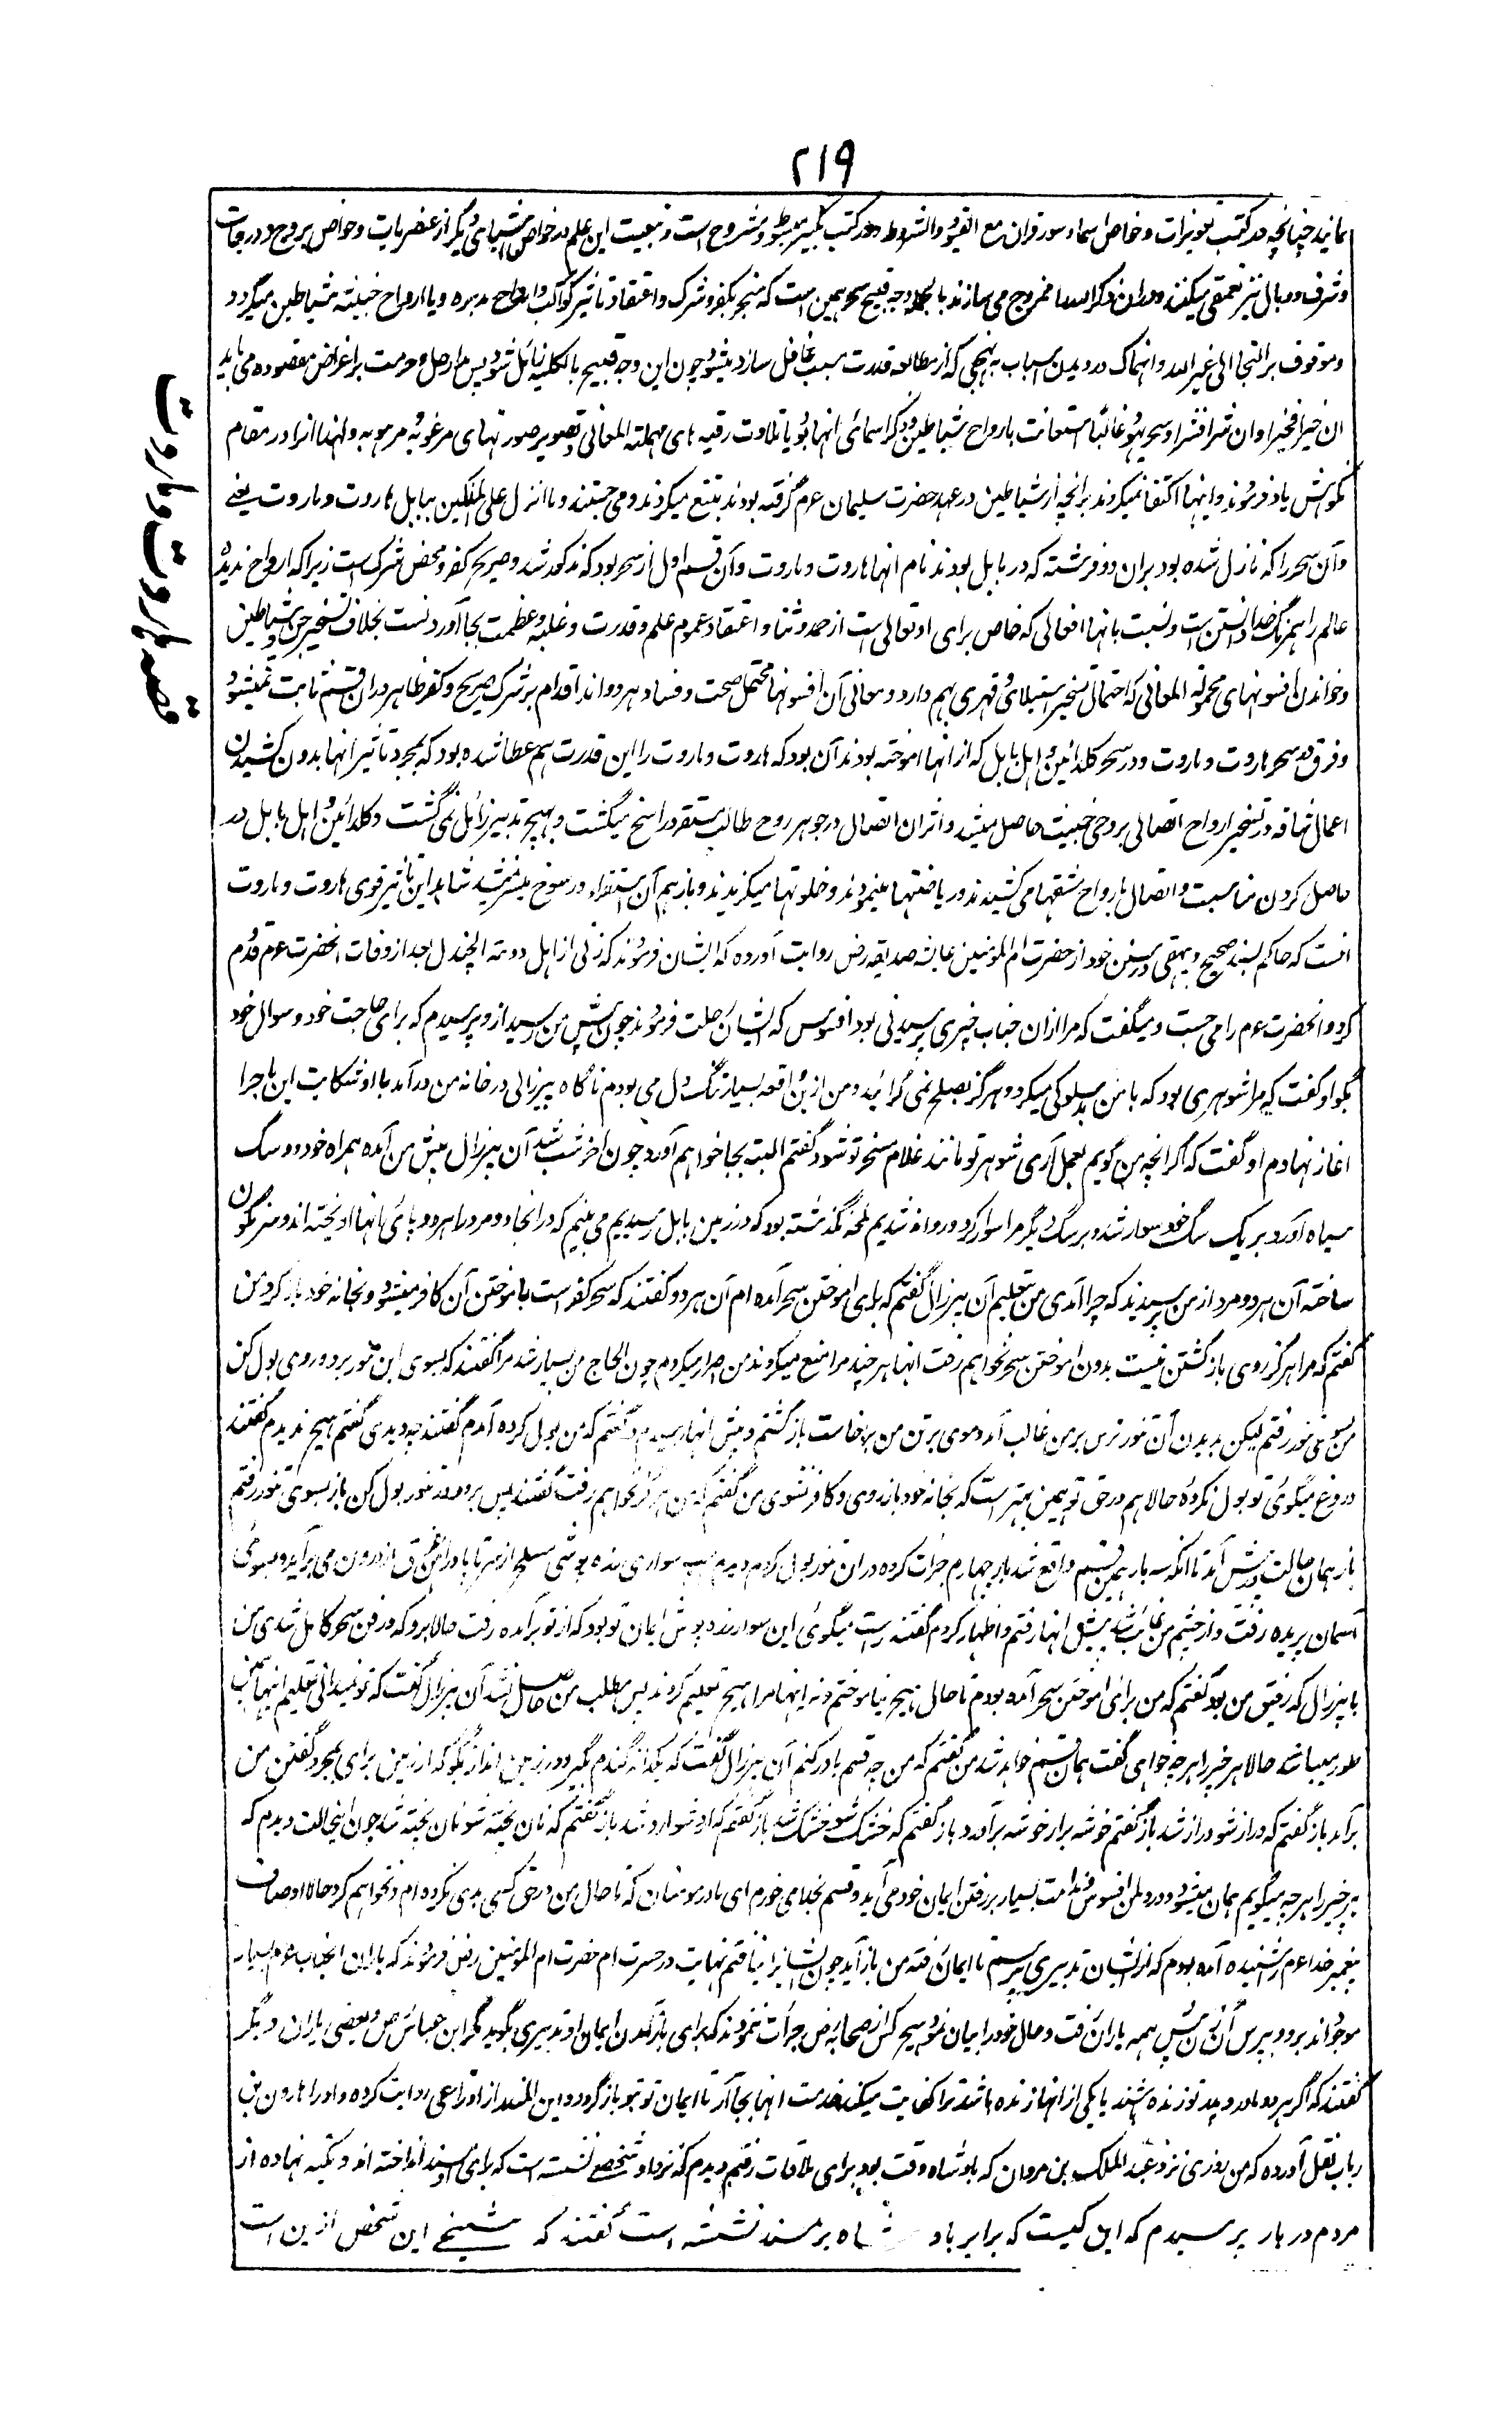 ۲۱۹
قصه هاروت و ماروت
نمایند چنانچه در کتب تعویذات و خواص اسما و سور قران مع القیود والشروط و در کتب تکبیر مبسوط و مشروح است و تبعیت این علم در خواص اشیای دیگر از عنصریات و خواص بروج و درجات
و شرف و وبال نیز تعمقی میکنند و دران ذکر الله را ممزوج می سازند بالجمله وجه قبیح سحر همین است که منجر بکفر و شرک و اعتقاد تاثیر کواکب و ارواح مدبره و یا ارواح خبیثه شیاطین میگردد
و موقوف بر التجا الی غیر الله و انهماک در دیدن اسباب بنهجی که از مطالعه قدرت مسبب غافل سازد میشود چون این وجه قبیح بالکلیه زائل شود پس مدار حل و حرمت بر اغراض مقصوده می باید
ان خیرا فخیر او ان شرا فشر او سحر یهود غالبا استعانت بارواح شیاطین و ذکر اسمای انها بود یا تلاوت رقیه های مهملة المعانی و تصویر صورتهای مرغوبه مرهوبه و لهذا انرا در مقام
نکوهش یاد فرمودند و اینها اکتفا نمیکردند بر انچه از شیاطین در عهد حضرت سلیمان عم گرفته بودند بتتبع میکردند و می جستند و ما انزل علی الملکین ببابل هاروت و ماروت یعنے
و آن سحر را که نازل شده بود بران دو فرشته که در بابل بودند نام انها هاروت و ماروت و آن قسم اول از سحر بود که مذکور شد و صریح کفر و محض شرک است زیرا که ارواح مدبره
عالم را همرنگ خدا دانستن است و نسبت بانها افعالی که خاص برای او تعالی است از حمد و ثنا و اعتقاد عموم علم و قدرت و غلبه و عظمت بجا آوردنست بخلاف تسخیر جن و شیاطین
و خواندن افسونهای محموله المعانی که احتمال تسخیر استیلائی و قهری بهم دارد و معانی آن افسونها محتمل صحت و فساد هر دو اند اقدام بر شرک صریح و کفر ظاهر دران قسم ثابت نمیشود
و فرق در سحر هاروت و ماروت و در سحر کلدانین و اهل بابل که از انها اموخته بودند آن بود که هاروت و ماروت را این قدرت هم عطا شده بود که بمجرد تاثیر انها بدون کشیدن
اعمال شاقه در تسخیر ارواح اتصالی بروحی خبیث حاصل میشد و اثر ان اتصال در جوهر روح طالب مستقر و راسخ میگشت و بهیچ تدبیر زائل نمی گشت و کلدانین و اهل بابل در
حاصل کردن مناسبت و اتصال بارواح مشقتها می کشیدند و ریاضتها مینمودند و خلوتها میگزیدند و باز هم آن استقرار و رسوخ میسر نمیشد شاهد این تاثیر قوی هاروت و ماروت
انست که حاکم بسند صحیح و بیهقی در سنن خود از حضرت ام المومنین عایشه صدیقه رض روایت آورده که ایشان فرمودند که زنی از اهل دومة الجندل بعد از وفات انحضرت عم قدوم
کرد و انحضرت عم را می جست و میگفت که مرا ازان جناب چیزی پرسیدنی بود افسوس که ایشان رحلت فرمودند چون پیش من رسید از و پرسیدم که برای حاجت خود و سوال خود
بگو او گفت که مرا شوهری بود که با من بدسلوکی میکرد و هرگز بصلح نمی گرائید و من ازین واقعه بسیار تنگ دل می بودم ناگاه پیرزالی در خانه من درآمد با او شکایت این ماجرا
اغاز نهادم او گفت که اگر انچه من گویم بعمل آری شوهر تو مانند غلام مسخر تو شود گفتم البته بجا خواهم آورد چون اخر شب شد آن پیرزال پیش من آمده همراه خود دو سگ
سیاه آورد بر یک سگ خود سوار شد و بر سگ دیگر مرا سوار کرد و روانه شدیم لمحه نگذشته بود که در زمین بابل رسیدیم می بینم که در انجا دو مرد را هر دو پای انها آویخته اند و سرنگون
ساخته آن هر دو مرد از من پرسیدند که چرا آمدی من بتعلیم آن پیرزال گفتم که برای اموختن سحر آمده ام آن هر دو گفتند که سحر کفر است باموختن آن کافر میشود و بخانه خود باز گرد من
گفتم که مرا هرگز روی باز گشتن نیست بدون اموختن سحر نخواهم رفت انها هر چند مرا منع میکردند من اصرار میکردم چون الحاح من بسیار شد مرا گفتند که بسوی این تنور برو و در وی بول کن
من بسوی تنور رفتم لیکن بدیدن آن تنور ترس بر من غالب آمد و موی بر تن من برخاست باز گشتم و پیش انها رسیدم و گفتم که من بول کرده آمدم گفتند چه دیدی گفتم هیچ ندیدم گفتند
دروغ میگوئی تو بول نکردهٔ حالا هم در حق تو همین بهتر است که بخانه خود باز روی و کافر نشوی من گفتم که من هرگز نخواهم رفت گفتند پس برو در تنور بول کن باز بسوی تنور رفتم
باز همان حالت در پیش آمد تا آنکه سه بار همین قسم واقع شد بار چهارم جرات کرده دران تنور بول کردم دیدم که سواری زره پوشی مسلح از سر تا پا در آهن غرق از درون می برآید و بسوی
آسمان پریده رفت و از چشم من غائب شد پیش انها رفتم و اظهار کردم گفتند راست میگوئی این سوار زره پوش ایمان تو بود که از تو برآمده رفت حالا برو که در فن سحر کامل شدی من
با پیرزال که رفیق من بود گفتم که من برای اموختن سحر آمده بودم تا حال هیچ نیاموختم و نه اینها مرا هیچ تعلیم کردند پس مطلب من حاصل نشد آن پیرزال گفت که تو نمیدانی تعلیم اینها همین
طور میباشد حالا هر چیز را هر چه خواهی گفت همان قسم خواهد شد من گفتم که من چه قسم باور کنم آن پیرزال گفت که یکدانه گندم بگیر و در زمین انداز بگو که از زمین برای بمجرد گفتن من
برآمد باز گفتم که دراز شو دراز شد باز گفتم خوشه برار خوشه برآورد باز گفتم که خشک شو خشک شد باز گفتم که آرد شو ارد شد باز گفتم که نان پخته شو نان پخته شد چون اینحالت دیدم که
هر چیز را هر چه میگویم همان میشود در دل من افسوس و ندامت بسیار بر رفتن ایمان خود می آید و قسم بخدا می خورم ای مادر مومنان که تا حال من در حق کسی بدی نکرده ام و نخواهم کرد حالا اوصاف
پیغمبر خدا عم را شنیده آمده بودم که از ایشان تدبیری پرسم تا ایمان رفته من باز آید چون ایشان را نیافتم نهایت در حسرت ام حضرت ام المومنین رض فرمودند که یاران انجناب عم بسیار
موجود اند برو و بپرس آن زن پیش همه یاران رفت و حال خود را بیان نمود هیچ کس از صحابه رض جرات ننمودند که برای باز آمدن ایمان او تدبیری بگوید مگر ابن عباس رض و بعضی یاران دیگر
گفتند که اگر هر دو مادر و پدر تو زنده باشند یا یکی از انها زنده باشد ترا کفایت میکند خدمت انها بجا آر تا ایمان تو بتو باز گردد و ابن المنذر از اوزاعی روایت کرده و او را هارون بن
رباب نقل آورده که من روزی نزد عبد الملک بن مروان که بادشاه وقت بود برای ملاقات رفتم دیدم که نزد او شخصے نشسته است که برای او مسند انداخته اند و تکیه نهاده از
مردم دربار پرسیدم که این کیست که برابر بادشاه بر مسند نشسته است گفتند که شیخے این شخص ازین است